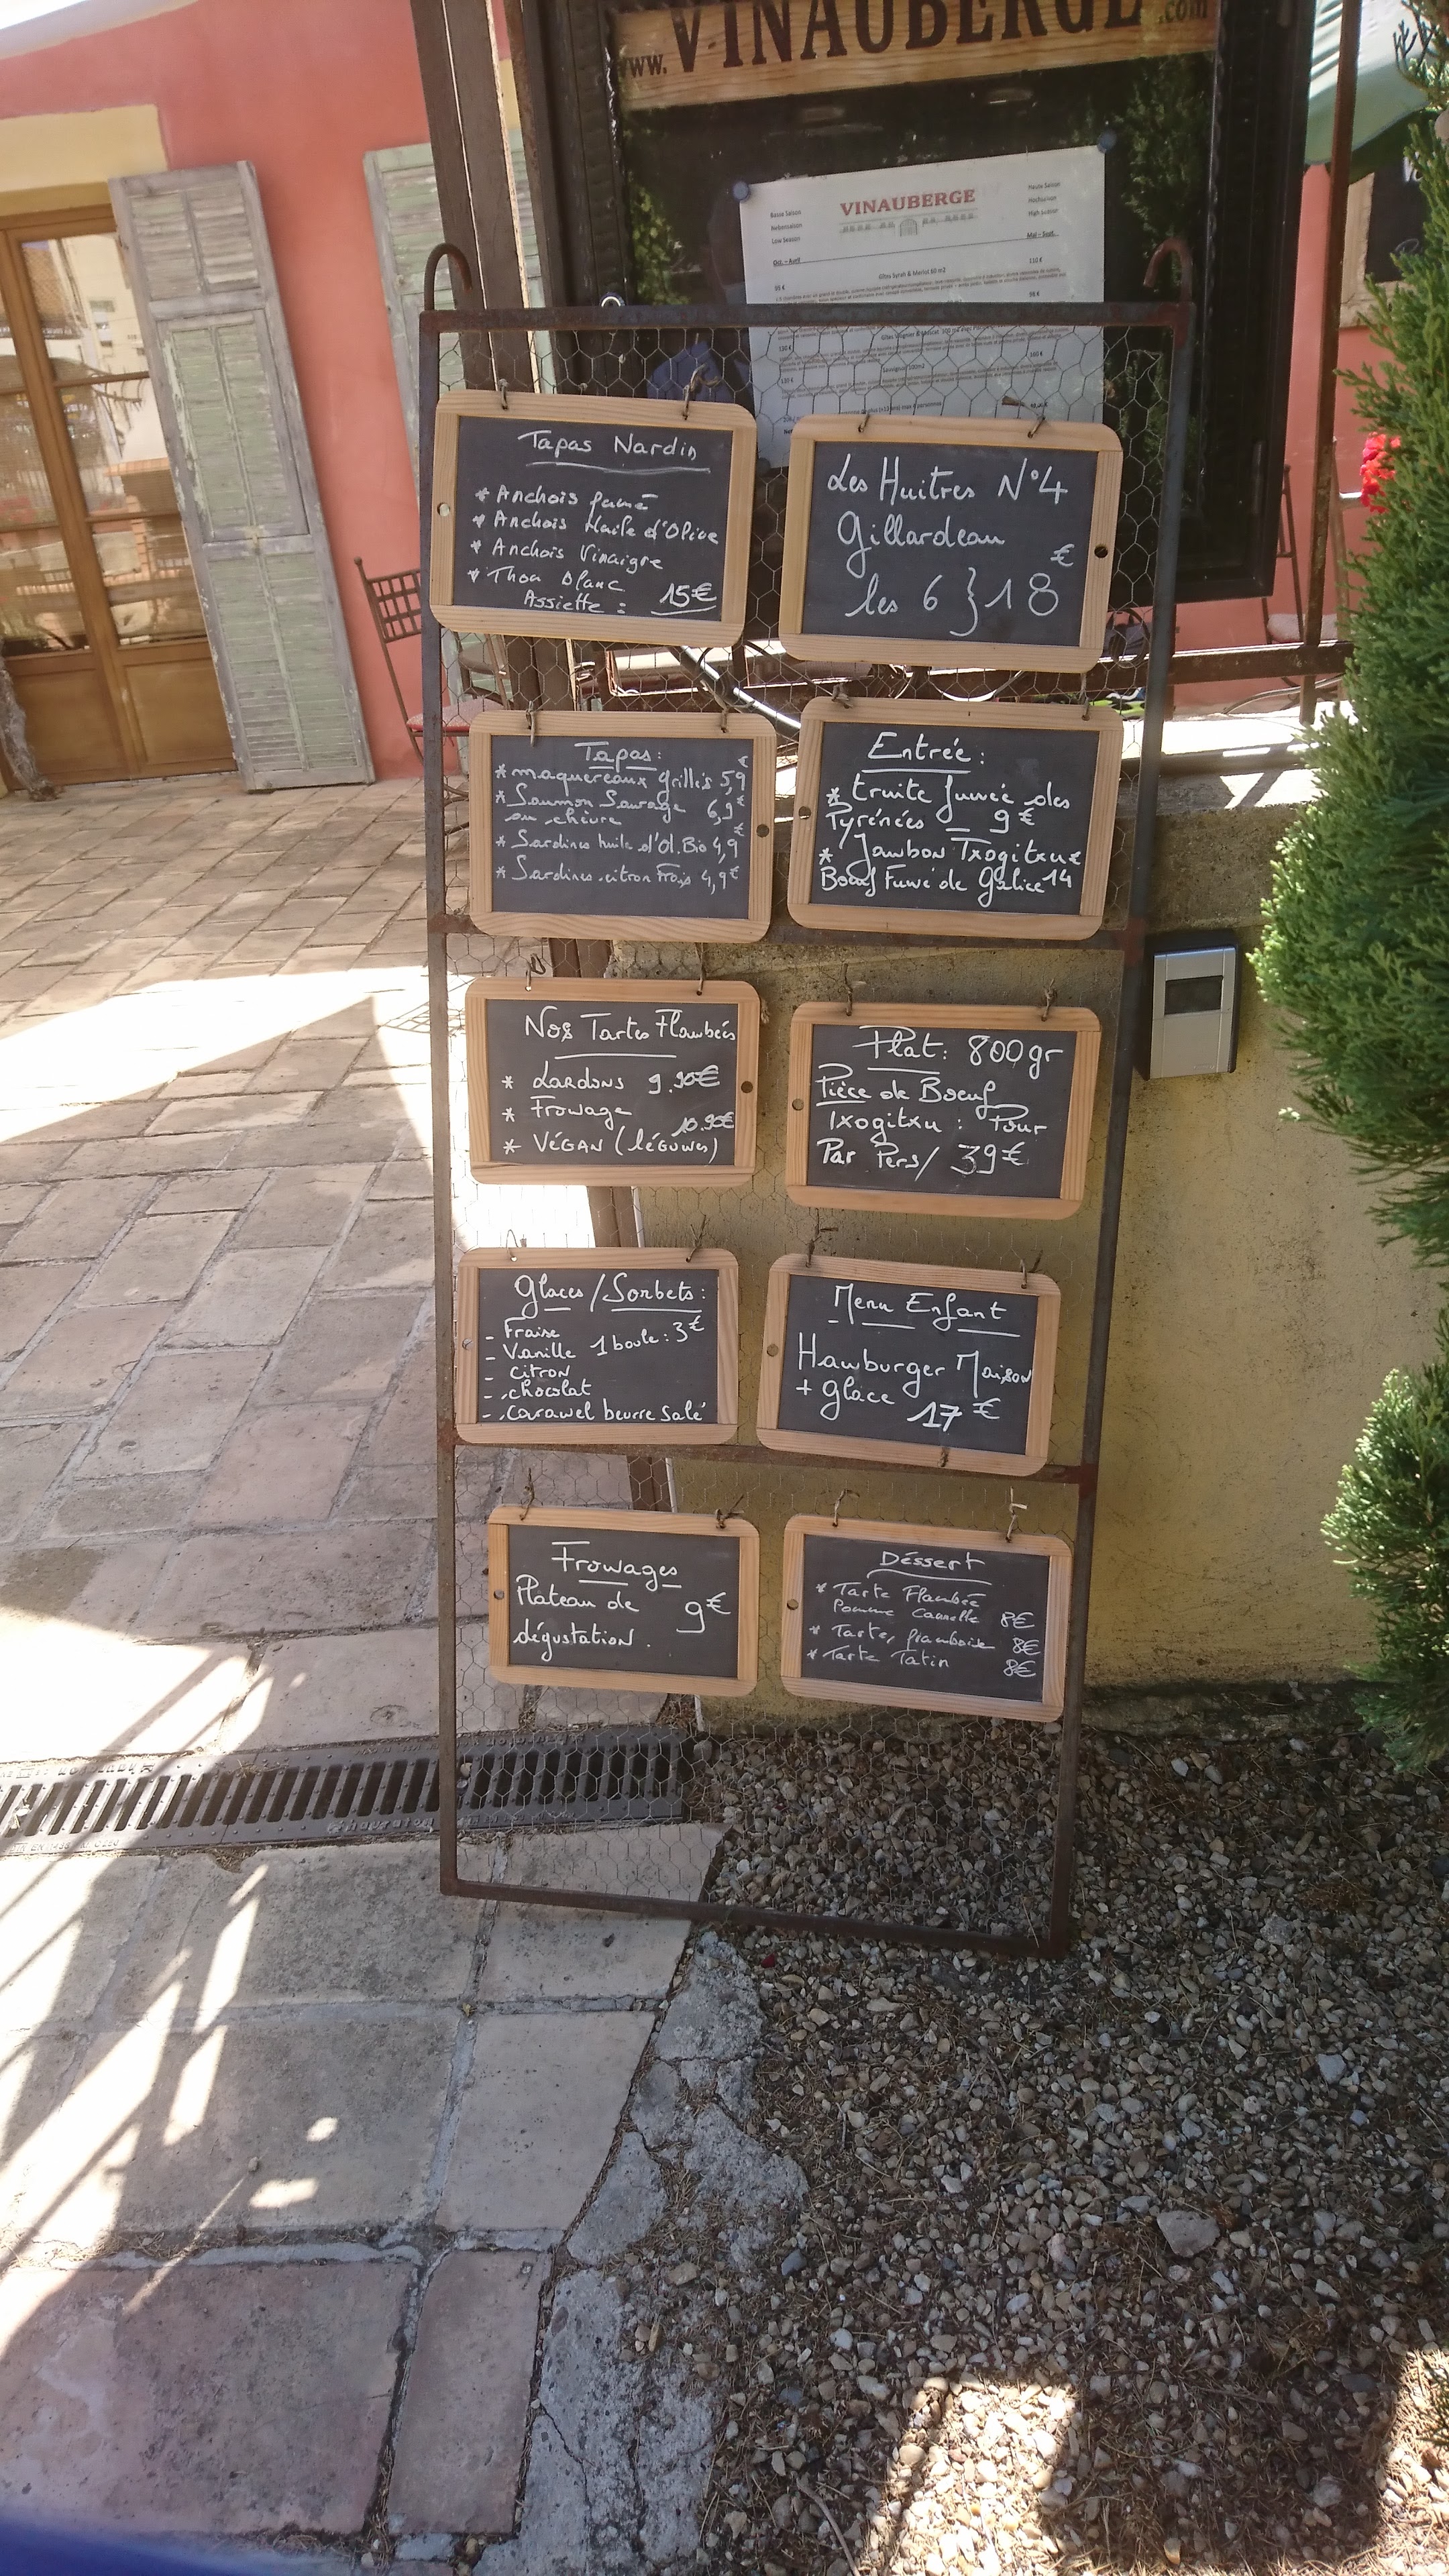 www.VINAUBERGE.com
VINAUBERGE
Basse Saison
Nebensaison
Low Season
Oct. – Avril
Haute Saison
Hochsaison
High Season
Mai – Sept.
Gîtes Syrah & Merlot 60 m2
110 €
Tapas Nardin
* Anchois fumé
* Anchois Huile d'Olive
* Anchois Vinaigre
* Thon blanc
Assiette : 15€
Les Huitres N°4
Gillardeau
les 6 } 18 €
Tapas:
* maquereaux grillés 5,9€
* Saumon Sauvage 6,9€
au chèvre
* Sardines huile d'Ol. Bio 4,9€
* Sardines citron Frais 4,9€
Entrée :
* truite fumée des
Pyrénées — 9€
* Jambon Txogitxu €
Boeuf Fumé de Galice 14
Nos Tartes Flambées
* Lardons 9.90€
* Fromage
10.90€
* VÉGAN (légumes)
Plat : 800gr
Pièce de Boeuf
Txogitxu : Pour
Par Pers/ 39€
Glaces / Sorbets :
- Fraise
- Vanille 1 boule : 3€
- citron
- chocolat
- caramel beurre salé
Menu Enfant
Hamburger Maison
+ glace 17 €
Fromages
Plateau de 9€
dégustation.
Déssert
* Tarte Flambée
Pomme Cannelle 8€
* Tarte, framboise 8€
* Tarte Tatin 8€